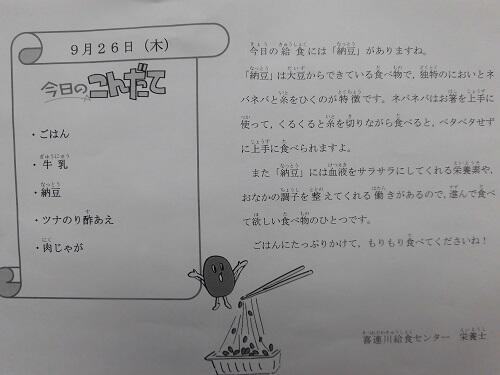 9月26日（木）
今日のこんだて
・ごはん
・牛乳
・納豆
・ツナのり酢あえ
・肉じゃが
今日の給食には「納豆」がありますね。
「納豆」は大豆からできている食べ物で，独特のにおいとネ
バネバと糸をひくのが特徴です。ネバネバはお箸を上手に
使って，くるくると糸を切りながら食べると，ベタベタせず
に上手に食べられますよ。
また「納豆」には血液をサラサラにしてくれる栄養素や，
おなかの調子を整えてくれる働きがあるので，進んで食べ
て欲しい食べ物のひとつです。
ごはんにたっぷりかけて，もりもり食べてくださいね！
喜連川給食センター　栄養士